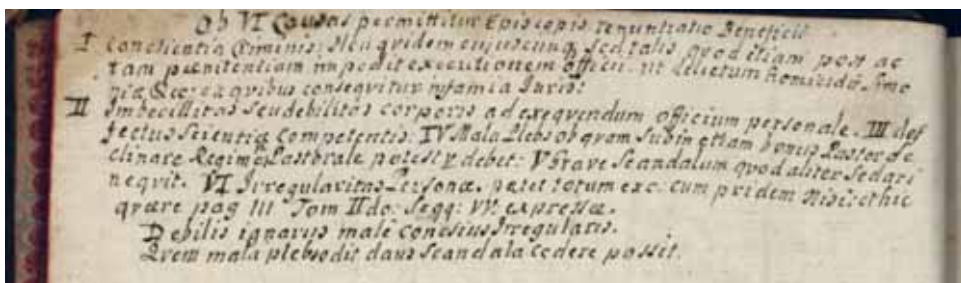 Ob VI Causas permittitur Episcopis renuntiatio Beneficii
I Conscientia Criminis; Neu quidem cujuscunq; sed talis quod etiam post ac
tam pænitentiam impedit executionem officii. ut Delictum homicidii, Simo
niæ &c: ex quibus consequitur infamia Juris:
II Imbecillitas seu debilitas corporis ad exequendum officium personale. III def
fectus Scientiæ Competentis. IV Mala Plebs ob quam Subin etiam bonus Pastor de
clinare Regimen Pastorale potest & debet: V Grave Scandalum quod aliter Sedari
nequit. VI Irregularitas Personæ. patet totum exc: cum pridem Nisi et hic
quære pag III Tom IIdo: Seqq: VV: expressæ.
Debilis ignarus male conscius Irregularis.
Quem mala plebs odit dans Scandala cedere possit.